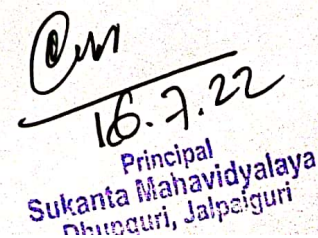 16.7.22
Principal
Sukanta Mahavidyalaya
Dhupguri, Jalpaiguri